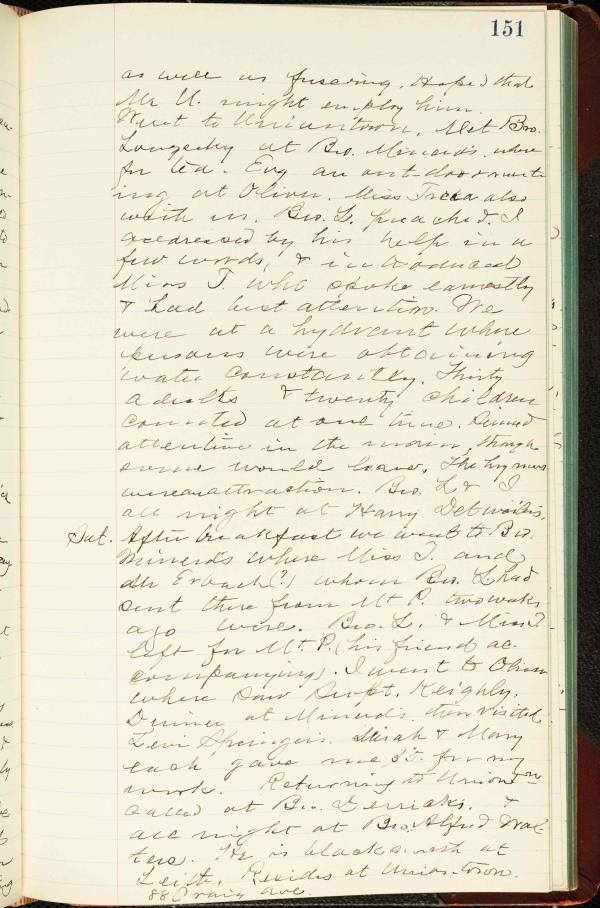 151
as well as fussing. Hoped that
Mr U. might employ him.
Went to Uniontown. Met Bro.
Longecky at Bro. Minerd's where
for tea. Evg an out-door meet-
ing at Oliver. Miss also
with us. Bro. L. preached. I
addressed by his help in a
few words, & introduced
Miss T. who spoke earnestly
& had best attention. We
were at a hydrant where
persons were obtaining
water constantly. Thirty
adults & twenty children
counted at one time. Remained
attentive in the main, though
some would leave. The hymns
were an attraction. Bro. L & I
all night at Harry Detwiler's.
Sat. After breakfast we went to Bro.
Minerd's where Miss T. and
Mr Erbach(?) whom Bro. L. had
sent there from Mt P. two weeks
ago were. Bro. L. & Miss T
left for Mt. P. (his friend ac-
companying). I went to Oliver
where saw Supt. Keighly.
Dinner at Minerd's. then visited
Levi Springer's. Sarah & Mary
each gave me for my
work. Returning to Uniontown
called at Bro. Derrick's. &
all night at Bro. Alfred Wal-
ters. He is blacksmith at
Leith. Resides at Uniontown.
88 Craig Ave.